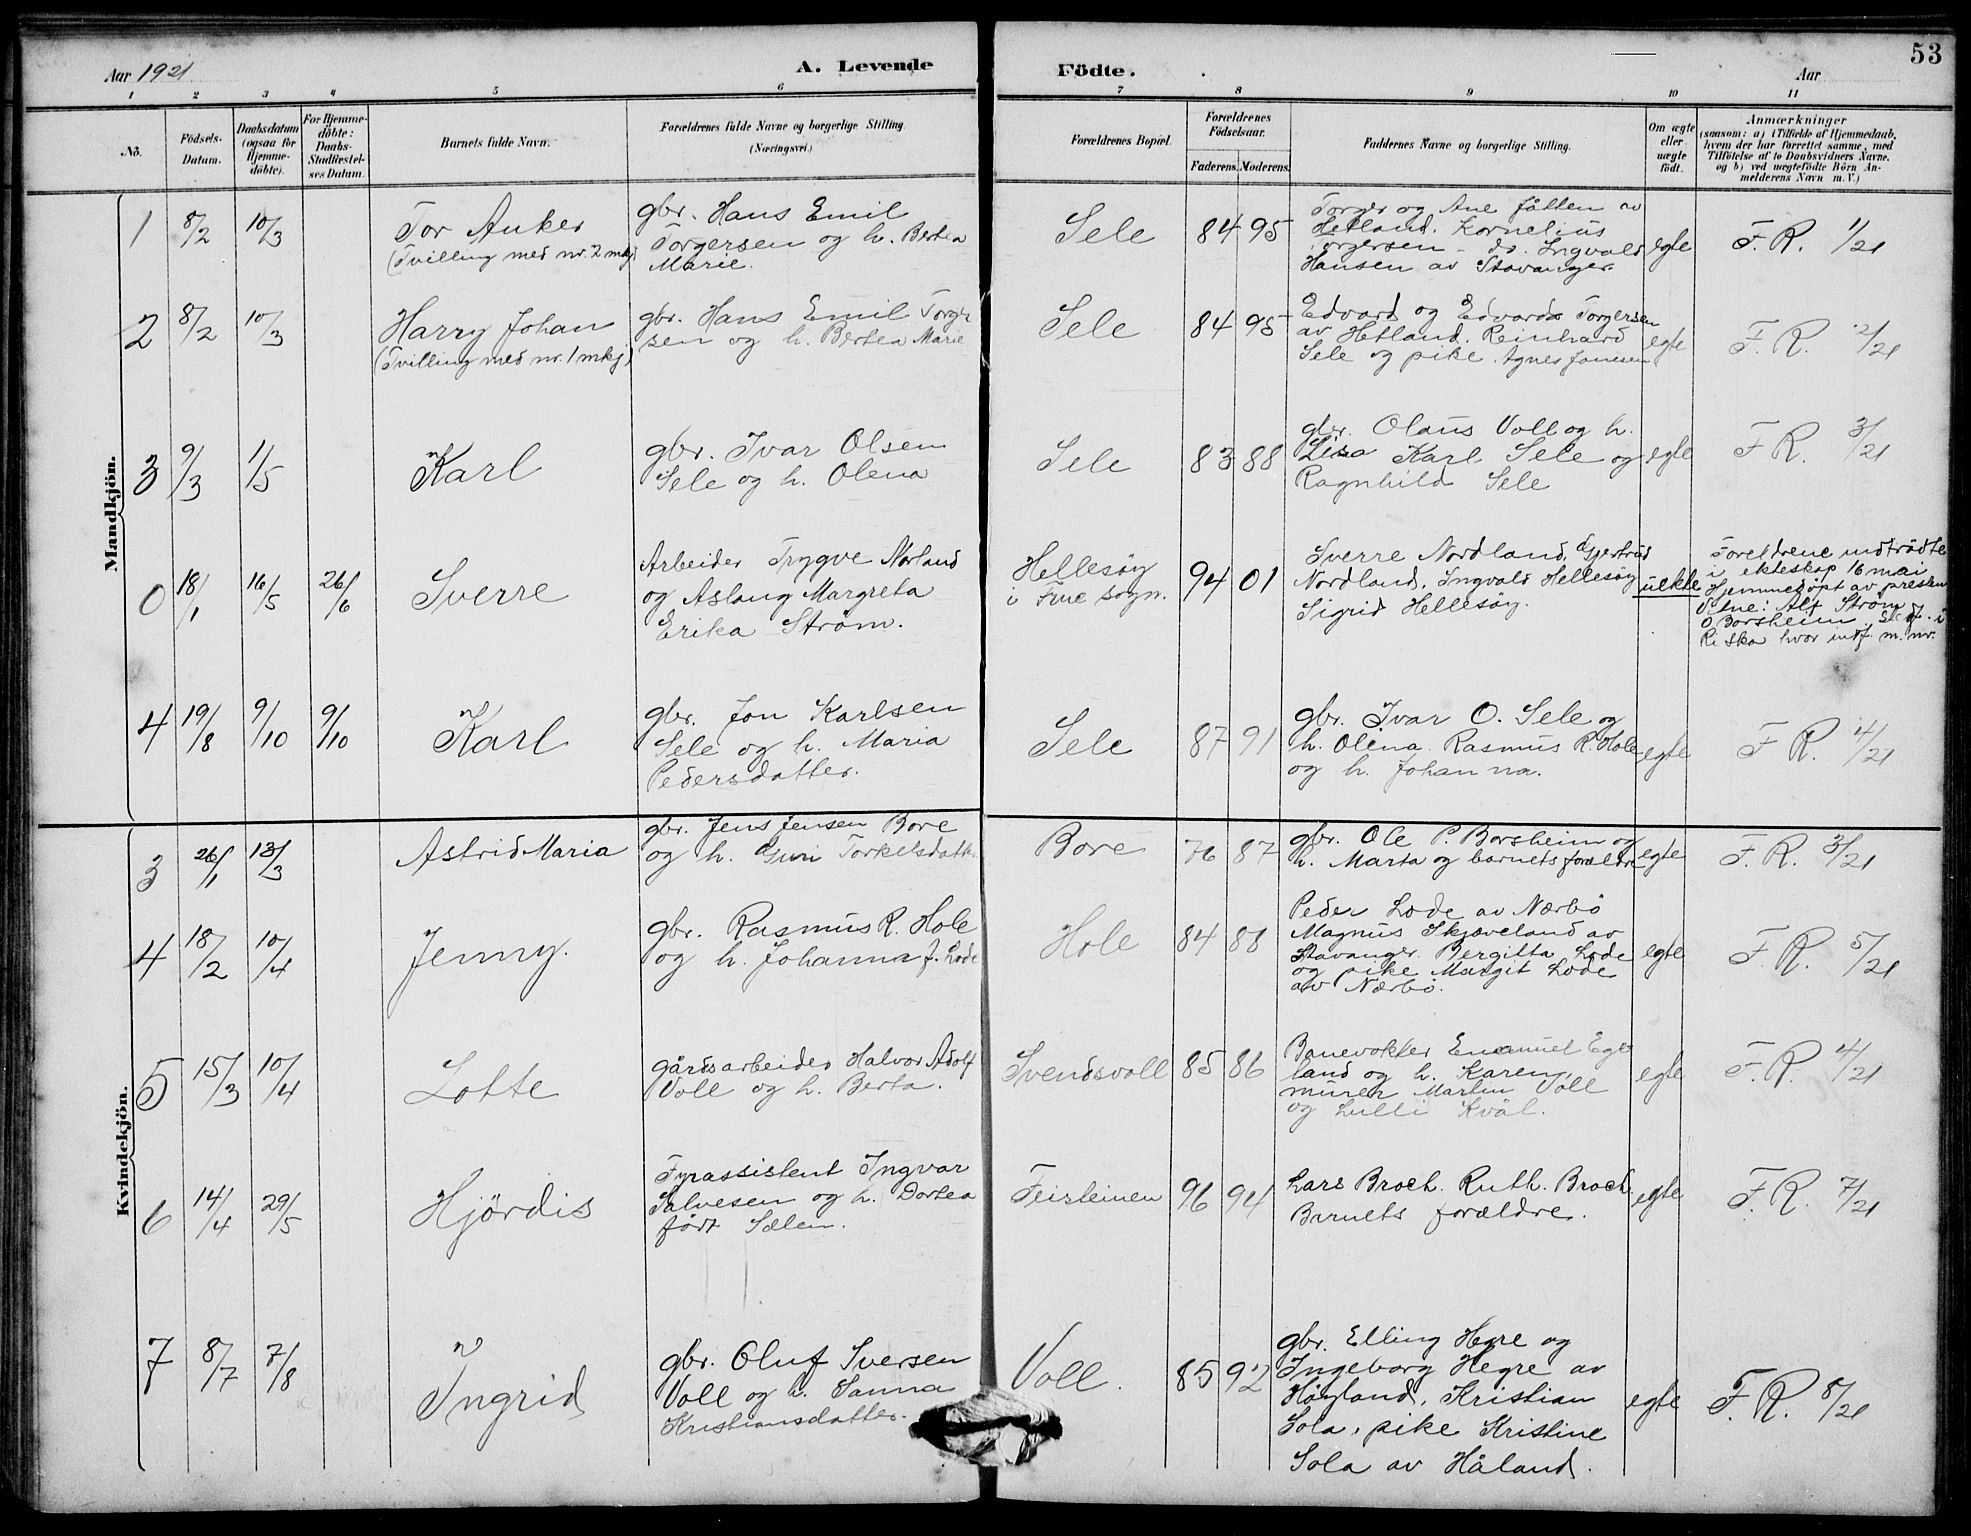 53
Aar 1921
A. Levende
Födte.
Aar
1 2 3 4 5 6 7 8 9 10 11
No.
Födsels-
Datum.
Daabsdatum
(ogsaa for
Hjemme-
döbte).
For Hjemme-
döbte:
Daabs-
Stadfæstel-
ses Datum.
Barnets fulde Navn.
Forældrenes fulde Navne og borgerlige Stilling.
(Næringsvei.)
Forældrenes Bopæl.
Forældrenes
Födselsaar.
Faderens. Moderens.
Faddernes Navne og borgerlige Stilling.
Om ægte
eller
uægte
födt.
Anmærkninger
(saasom: a) i Tilfælde af Hjemmedaab,
hvem der har forrettet samme, med
Tilföielse af to Daabsvidners Navne,
og b) ved uægtefödte Börn An-
melderens Navn m. V.)
Mandkjön.
1 8/2 10/3
Tor Anker
(Tvilling med nr. 2 mkj)
gbr. Hans Emil
Torgersen og h. Bertea
Marie.
Sele
84 95
Torger og Ane Jåtten av
Hetland. Kornelius
Torgersen - ds. Ingvald
Hansen av Stavanger.
egte
F. R. 1/21
2 8/2 10/3
Harry Johan
(Tvilling med nr. 1 mkj)
gbr. Hans Emil Torger
sen og h. Bertea Marie
Sele
84 95
Edvard og Edvarda Torgersen
av Hetland. Reinhard
Sele og pike Agnes Jonesen
egte
F. R. 2/21
3 9/3 1/5
Karl
gbr. Ivar Olsen
Sele og h. Olena
Sele
83 88
gbr. Olaus Voll og h.
Lisa Karl Sele og
Ragnhild Sele
egte
F R. 3/21
0 18/1 16/5 26/6
Sverre
Arbeider Trygve Norland
og Aslaug Margreta
Erika Ström.
Hellesöy
i Frue sogn.
94 01
Sverre Nordland, Gjertrud
Nordland, Ingvald Hellesöy
Sigrid Hellesöy.
uekte
Foreldrene indtrådte
i ekteskap 16 mai
Hjemmedöpt av presten
Vitne: Alf Ström
O Borsheim.
Riska hvor indf. m. nr.
4 19/8 9/10 9/10
Karl
gbr. Jon Karlsen
Sele og h. Maria
Pedersdatter.
Sele
87 91
gbr. Ivar O. Sele og
h. Olena. Rasmus R. Hole
og h. Johanna.
egte
F R. 4/21
Kvindekjön.
3 26/1 13/3
Astrid Maria
gbr. Jens Jensen Bore
og h. Guri Torkelsdatt.
Bore
76 87
gbr. Ole P. Borsheim og
h. Marta og barnets forældre
egte
F. R. 3/21
4 18/2 10/4
Jenny.
gbr. Rasmus R. Hole
og h. Johanna f. Lode
Hole
84 88
Peder Lode av Nærbö
Magnus Skjæveland av
Stavanger. Bergitta Lode
og pike Margit Lode
av Nærbö.
egte
F. R. 5/21
5 15/3 10/4
Lotte
gårdsarbeider Halvor Adolf
Voll og h. Berta.
Svendsvoll
85 86
Banevokter Emanuel Ege
land og h. Karen,
murer Martin Voll
og Lulli Kvål.
egte
F. R. 4/21
6 14/4 29/5
Hjördis
Fyrassistent Ingvar
Salvesen og h. Dortea
födt Sælen.
Feisteinen
96 94
Lars Broch. Ruth. Broch.
Barnets forældre.
egte
F. R. 7/21
7 8/7 7/8
Ingrid
gbr. Oluf Sversen
Voll og h. Sanna
Kristiansdatter.
Voll.
85 92
gbr. Elling Hegre og
Ingeborg Hegre av
Höyland, Kristian
Sola, pike Kristine
Sola av Håland.
egte
F. R. 8/21